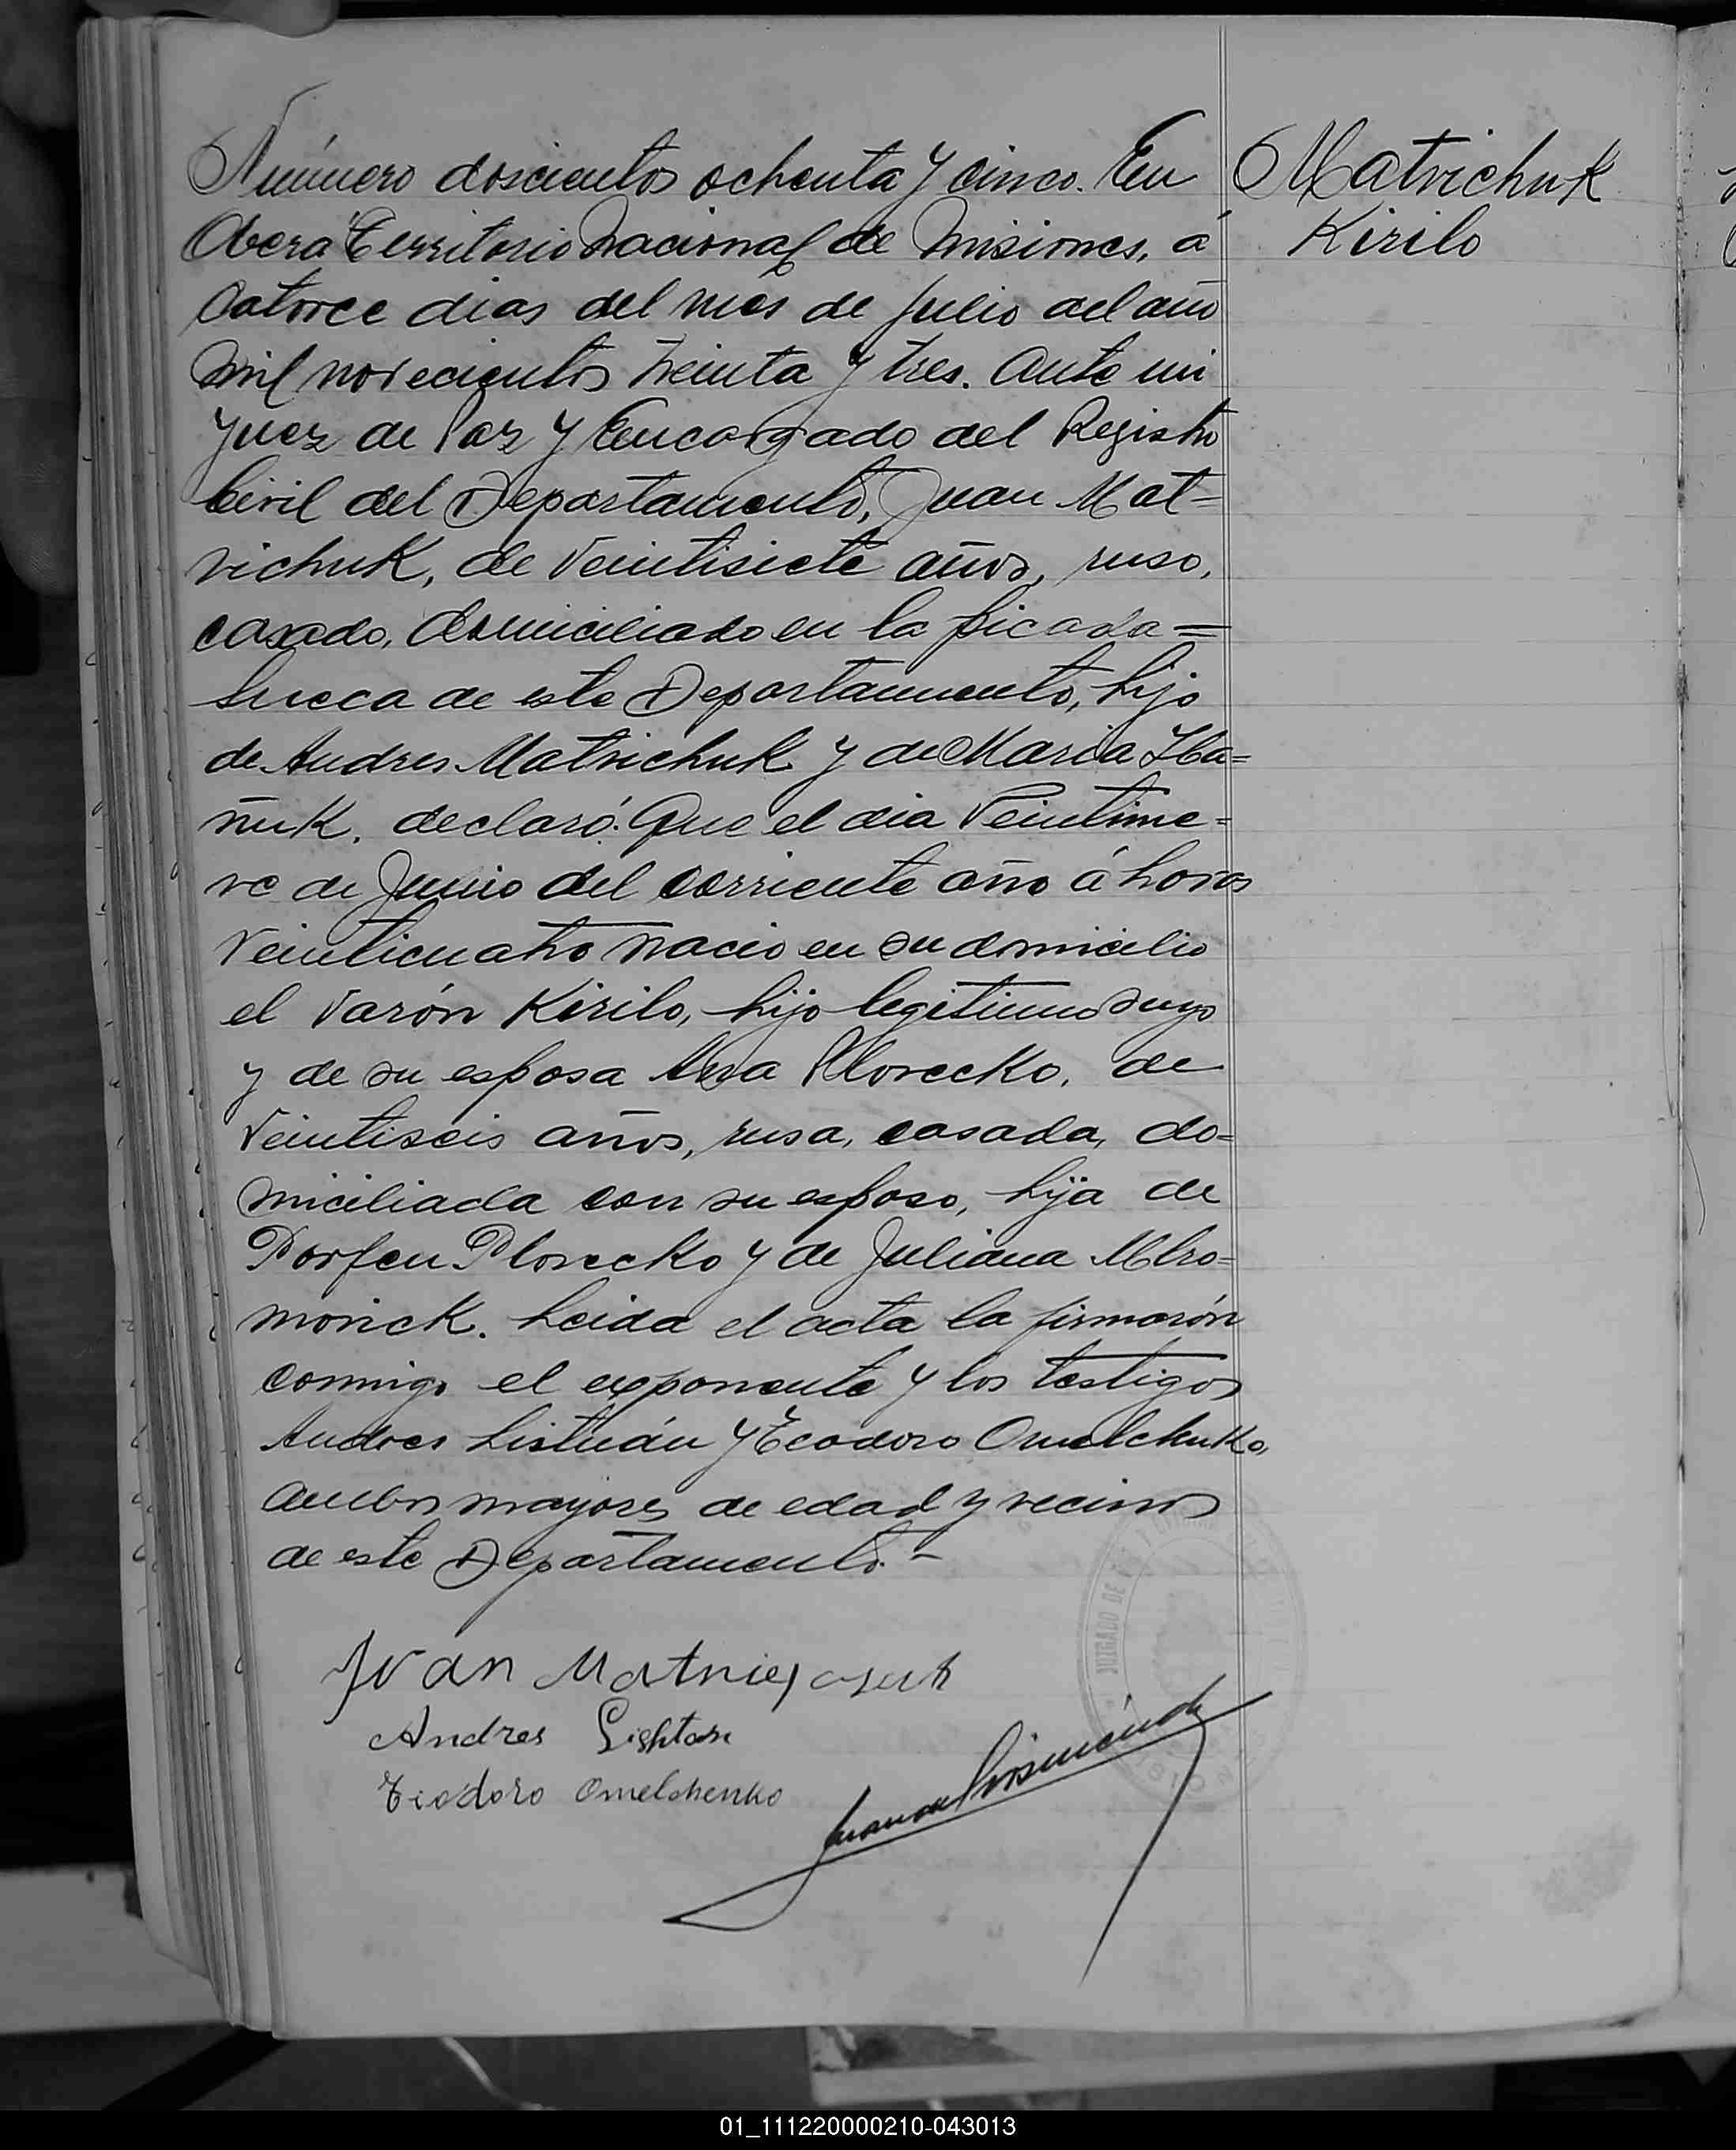 Número doscientos ochenta y cinco. En
Oberá Territorio Nacional de Misiones, á
Catorce dias del mes de Julio del año
mil novecientos treinta y tres. Ante mi
Juez de Paz y Encargado del Registro
Civil del Departamento, Juan Mat=
vichuk, de veintisiete años, ruso,
casado, domiciliado en la picada=
sueca de este Departamento, hijo
de Andres Matvichuk y de Maria Iba=
ñuk, declaró: Que el dia Veintinue=
ve de Junio del corriente año á horas
Veinticuatro nacio en su domicilio
el varón Kirilo, hijo legitimo suyo
y de su esposa Ana Plovecko, de
Veintiseis años, rusa, casada, do=
miciliada con su esposo, hija de
Porfeu Plovecko y de Juliana
Leida el acta la firmarón
conmigo el exponente y los testigos
Andres Listuán y Teodoro Omelchuko,
ambos mayores de edad y vecinos
de este Departamento.-
Matvichuk
Kirilo
Ivan
Andres Lishtan
Tiodoro Omelchenko
JUZGADO DE
01_111220000210-043013